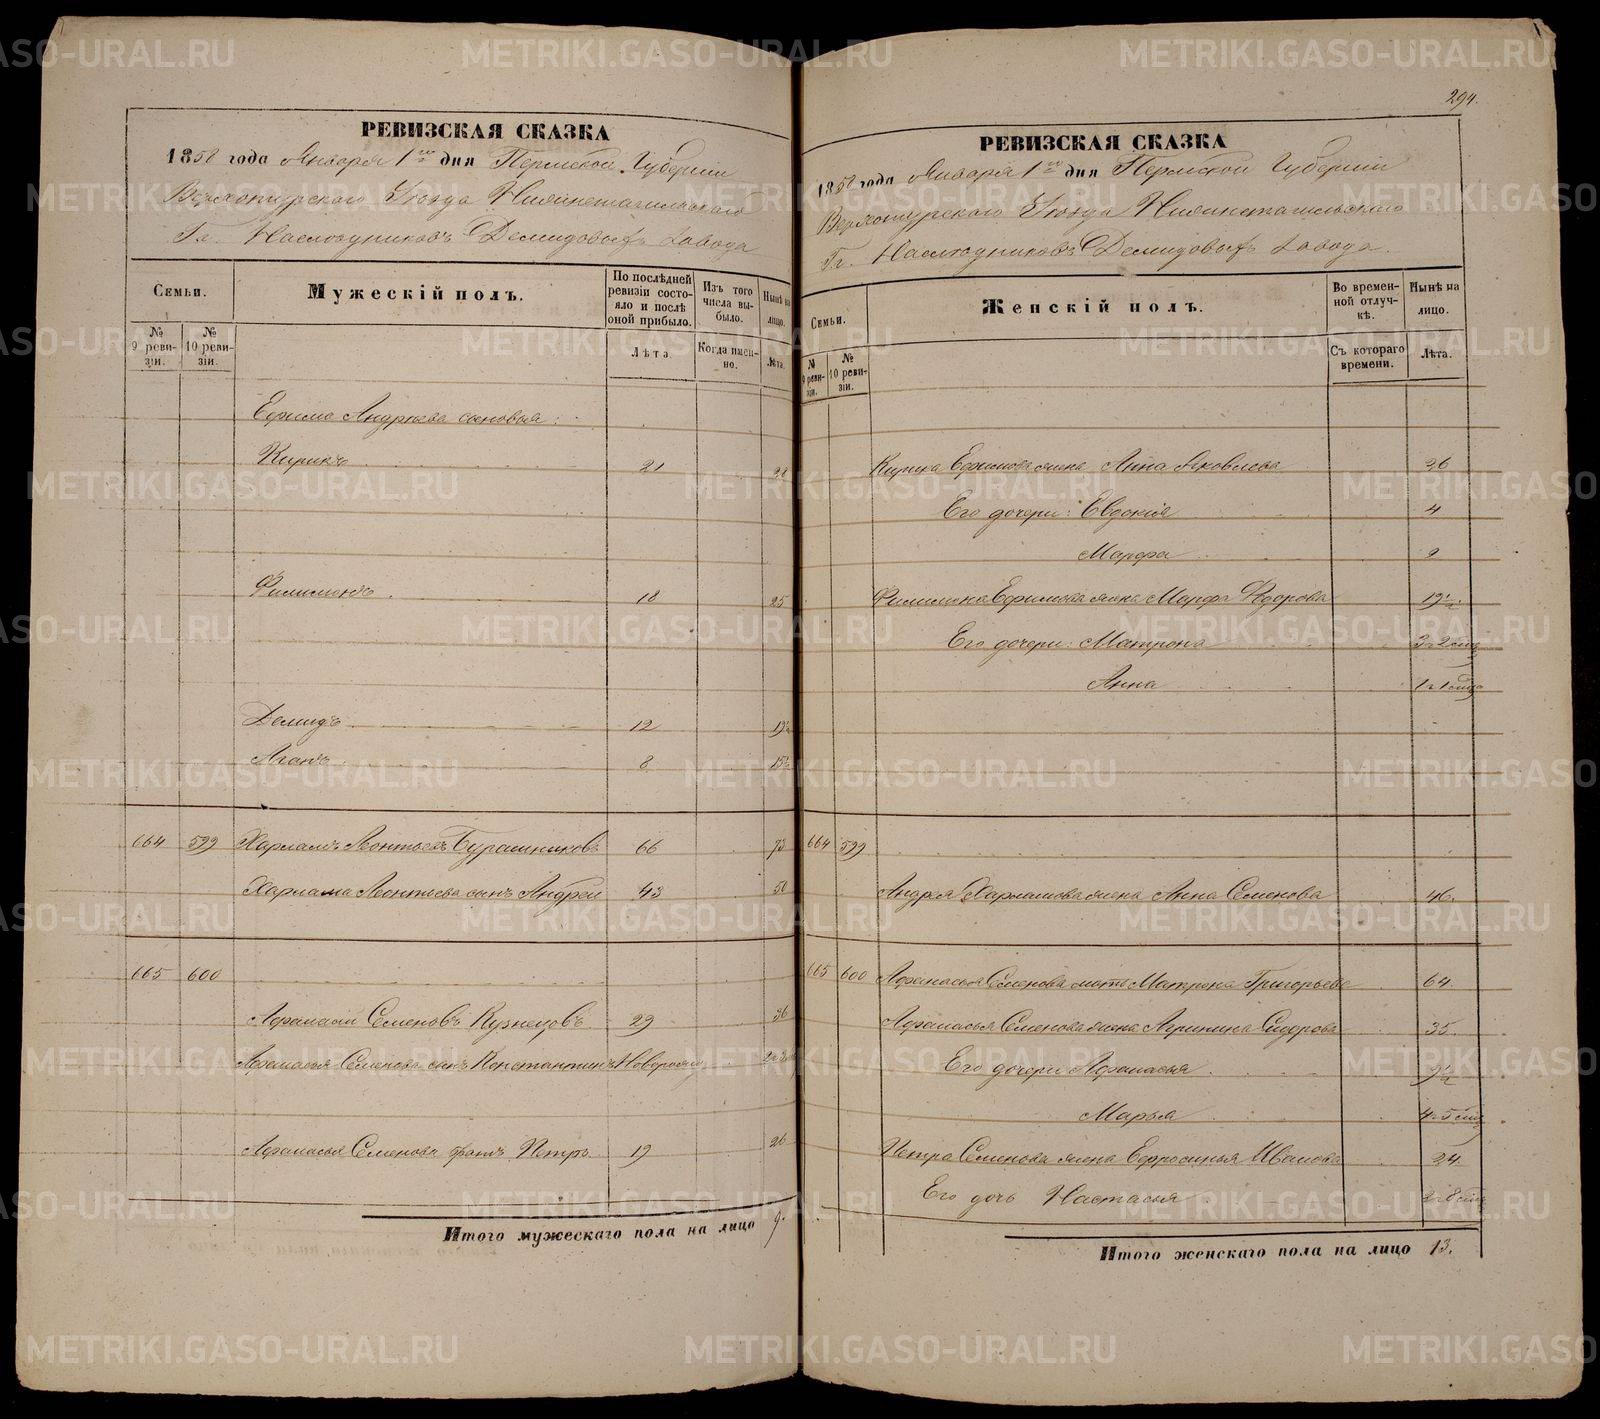 294.
РЕВИЗСКАЯ СКАЗКА
1858 года Января 1го дня Пермской Губернии
Верхотурского Уѣзда Нижнетагильскаго
Гг. Наслѣдниковъ Демидовыхъ завода
Семьи.
Мужескій полъ.
По послѣдней ревизіи состояло и послѣ оной прибыло.
Изъ того числа выбыло.
Нынѣ на лицо.
№ 9 ревизіи.
№ 10 ревизіи.
Лѣта.
Когда именно.
Лѣта.
Ефима Андреева сыновья:
Кирикъ 21 28
Филимонъ 18 25
Демидъ 12 19½
8 15½
664 599 Харламъ Леонтьевъ Бурашниковъ 66 73
Харлама Леонтьева сынъ Андрей 43 50
665 600
Афанасій Семеновъ Кузнецовъ 29 36
Афанасья Семенова сынъ Константинъ Новорожд
Афанасья Семенова братъ Петръ 19 26
Итого мужескаго пола на лицо 9.
РЕВИЗСКАЯ СКАЗКА
1858 года Января 1го дня Пермской Губерніи
Верхотурского Уѣзда Нижнетагильскаго
Гг. Наслѣдниковъ Демидовыхъ завода.
Семьи.
Женскій полъ.
Во временной отлучкѣ.
Нынѣ на лицо.
№ 9 ревизіи.
№ 10 ревизіи.
Съ котораго времени.
Лѣта.
Кирика Ефимова жена Анна Яковлева 26
Его дочери: Евдокія 4
Марфа 2
Филимона Ефимова жена Марфа Федорова 19½
Его дочери: Матрона
Анна 1 г 1 мѣц
664 599
Андрея Харламова жена Анна Семенова 46.
665 600 Афанасья Семенова мать Матрона Григорьева 64
Афанасья Семенова жена Агрипина Сидорова 35.
Его дочери Афанасья 9½
Марья 4 г 5 мѣц
Петра Семенова жена Ефросинья Иванова 24.
Его дочь Настасья
Итого женскаго пола на лицо 13.
METRIKI.GASO-URAL.RU